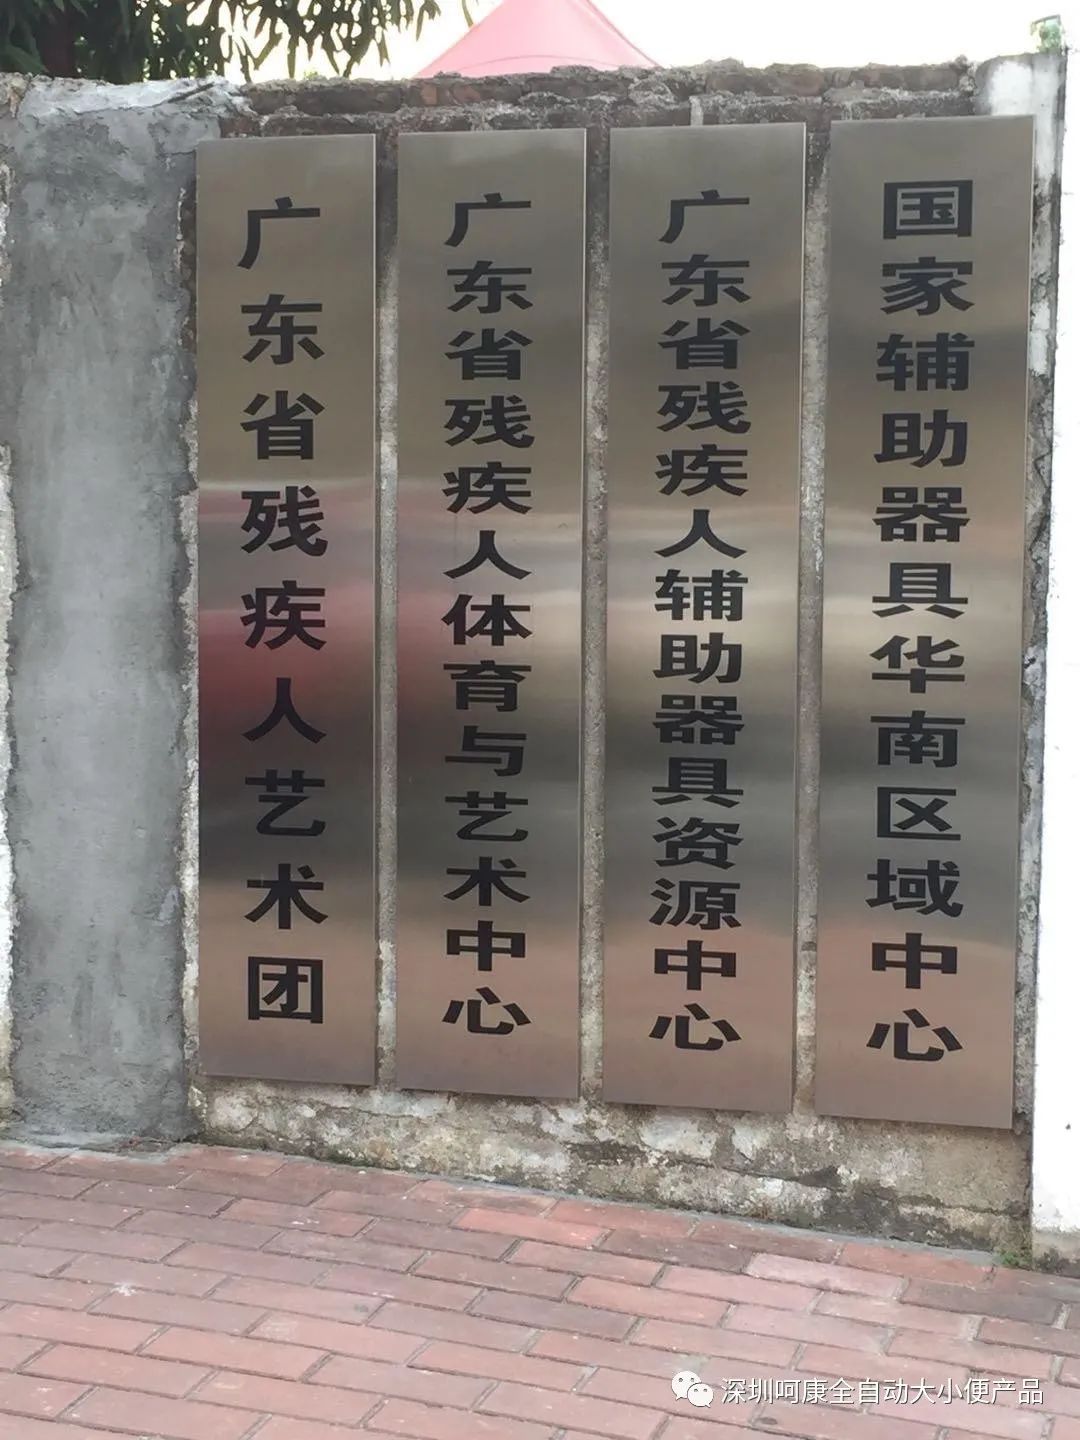 国家辅助器具华南区域中心
广东省残疾人辅助器具资源中心
广东省残疾人体育与艺术中心
广东省残疾人艺术团
深圳呵康全自动大小便产品